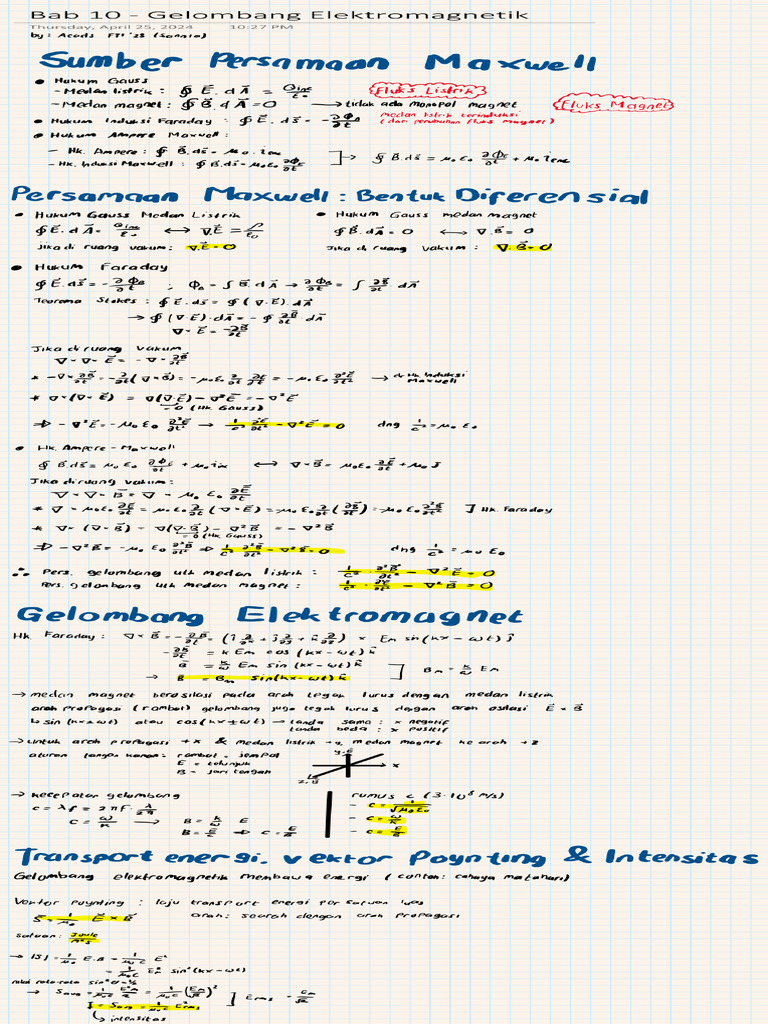 Bab 10 - Gelombang Elektromagnetik
Thursday, April 25, 2024 10:27 PM
by: Acads FTI '23 (Sannia)
Sumber Persamaan Maxwell
• Hukum Gauss
- Medan listrik: ∮ E⃗ . d A⃗ = Qinc/ε₀ Fluks Listrik
- Medan magnet: ∮ B⃗ . d A⃗ = 0 → tidak ada monopol magnet Fluks Magnet
• Hukum Induksi Faraday: ∮ E⃗ . ds⃗ = - ∂ΦB/∂t medan listrik terinduksi (dari perubahan fluks magnet)
• Hukum Ampere Maxwell:
- Hk. Ampere: ∮ B⃗. ds⃗ = μ₀. ienc
- Hk. Induksi Maxwell: ∮ B⃗. ds⃗ = μ₀ε₀ ∂ΦE/∂t ] → ∮ B⃗. ds⃗ = μ₀ε₀ ∂ΦE/∂t + μ₀ ienc
Persamaan Maxwell: Bentuk Diferensial
• Hukum Gauss Medan Listrik • Hukum Gauss medan magnet
∮ E⃗. d A⃗ = Qinc/ε₀ ⟷ ∇.E⃗ = ρ/ε₀ ∮ B⃗. dA = 0 ⟷ ∇.B⃗ = 0
Jika di ruang vakum: ∇.E⃗ = 0 Jika di ruang vakum: ∇.B⃗ = 0
• Hukum Faraday
∮ E⃗. ds⃗ = - ∂ΦB/∂t ; ΦB = ∫ B⃗. dA⃗ → ∂ΦB/∂t = ∫ ∂B⃗/∂t dA⃗
Teorema Stokes: ∮ E⃗. ds⃗ = ∮ (∇ × E⃗). dA⃗
→ ∮ (∇ × E⃗). dA⃗ = - ∮ ∂B⃗/∂t . dA⃗
∇ × E⃗ = - ∂B⃗/∂t
Jika di ruang vakum
∇ × ∇ × E⃗ = - ∇ × ∂B⃗/∂t
* - ∇ × ∂B⃗/∂t = - ∂/∂t (∇ × B⃗) = - μ₀ ε₀ ∂/∂t ∂E⃗/∂t = - μ₀ ε₀ ∂²E⃗/∂t² → dr Hk. Induksi Maxwell
* ∇ × (∇ × E⃗) = ∇(∇.E⃗) - ∇²E⃗ = - ∇²E⃗
= 0 (Hk. Gauss)
⇒ - ∇²E⃗ = - μ₀ ε₀ ∂²E⃗/∂t² → 1/c² ∂²E⃗/∂t² - ∇²E⃗ = 0 dng 1/c² = μ₀ ε₀
• Hk. Ampere - Maxwell
∮ B⃗. ds⃗ = μ₀ ε₀ ∂ΦE/∂t + μ₀ ⟷ ∇ × B⃗ = μ₀ε₀ ∂E⃗/∂t + μ₀ J
Jika di ruang vakum:
∇ × ∇ × B⃗ = ∇ × μ₀ ε₀ ∂E⃗/∂t
* ∇ × μ₀ε₀ ∂E⃗/∂t = μ₀ ε₀ ∂/∂t (∇ × E⃗) = - μ₀ε₀ ∂/∂t (∂B⃗/∂t) = - μ₀ ε₀ ∂²B⃗/∂t² ] Hk. Faraday
* ∇ × (∇ × B⃗) = ∇(∇.B⃗) - ∇²B⃗ = - ∇²B⃗
= 0 (Hk. Gauss)
⇒ - ∇²B⃗ = - μ₀ ε₀ ∂²B⃗/∂t² ⇒ 1/c² ∂²B⃗/∂t² - ∇²B⃗ = 0 dng 1/c² = μ₀ ε₀
∴ Pers. gelombang utk medan listrik: 1/c² ∂²E⃗/∂t² - ∇²E⃗ = 0
Pers. gelombang utk medan magnet: 1/c² ∂²B⃗/∂t² - ∇²B⃗ = 0
Gelombang Elektromagnet
Hk. Faraday: ∇ × E⃗ = - ∂B⃗/∂t = (î ∂/∂x + ĵ ∂/∂y + k̂ ∂/∂z) × Em sin(kx - ωt) ĵ
- ∂B⃗/∂t = k Em cos (kx - ωt) k̂
B⃗ = k/ω Em sin (kx - ωt) k̂ ] Bm = k/ω Em
→ B⃗ = Bm sin(kx - ωt) k̂
→ medan magnet berosilasi pada arah tegak lurus dengan medan listrik
arah propagasi (rambat) gelombang juga tegak lurus dengan arah osilasi E⃗ × B⃗
↳ sin(kx±ωt) atau cos(kx±ωt) → tanda sama: x negatif
tanda beda: x positif
→ untuk arah propagasi +x & medan listrik +y, medan magnet ke arah +z
aturan tangan kanan: rambat = jempol
E = telunjuk
B = jari tengah
y, E
x
z, B
→ kecepatan gelombang rumus c (3·10⁸ m/s)
c = λ f = 2πf · λ/2π - c = 1/√μ₀ε₀
c = ω/k → B = k/ω E - c = ω/k
B = E/c ⇒ c = E/B - c = E/B
Transport energi, vektor Poynting & Intensitas
Gelombang elektromagnetik membawa energi (contoh: cahaya matahari)
Vektor Poynting: laju transport energi per satuan luas
S⃗ = 1/μ₀ E⃗ × B⃗ arah: searah dengan arah propagasi
satuan: Joule/m²s
→ |S| = 1/μ₀ E.B = 1/μ₀c E²
= 1/μ₀c Em² sin²(kx - ωt)
nilai rata-rata sin²θ = 1/2
→ Savg = 1/μ₀c E²m/2 = 1/μ₀c (Em/√2)² ] Erms = Em/√2
I = Savg = 1/μ₀c E²rms
↳ intensitas